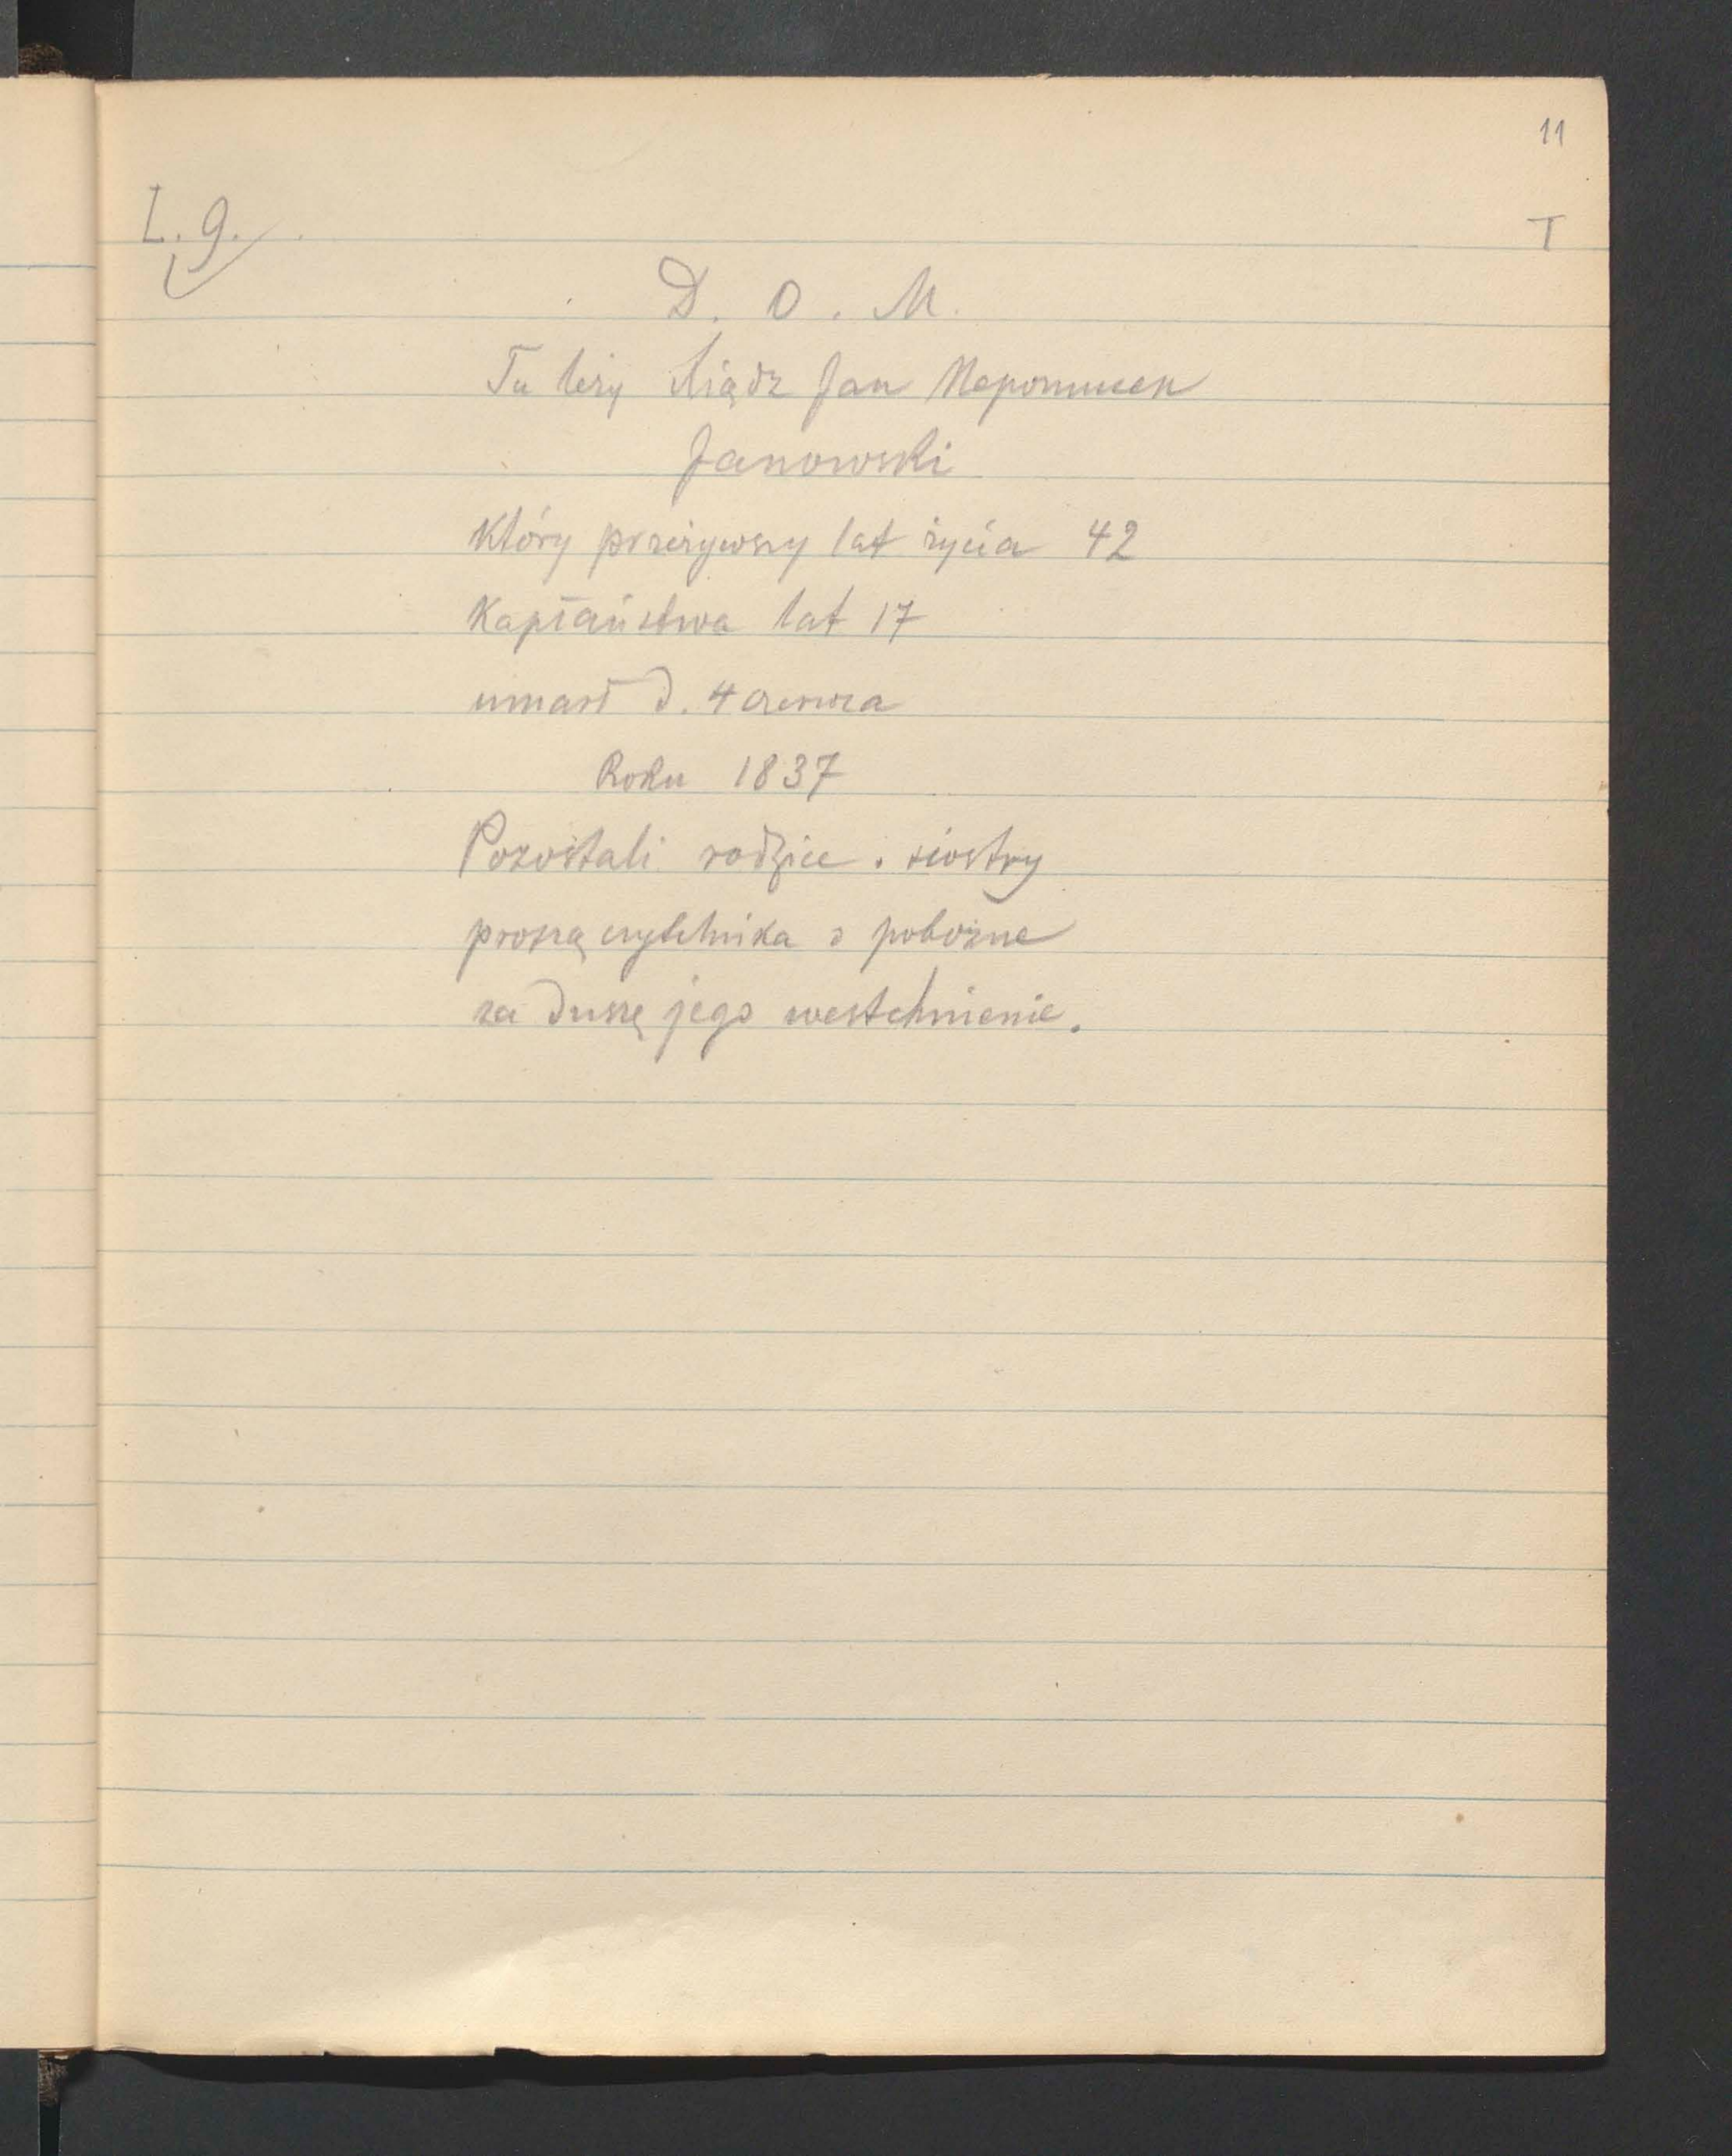 11
L. 9.
T
D. O. M.
Tu leży Xiądz Jan Nepomucen
Janowski
Który przeżywszy lat życia 42
Kapłaństwa lat 17
umarł d. 4 czerwca
Roku 1837
Pozostali rodzice i siostry
proszą czytelnika o pobożne
za duszę jego westchnienie.